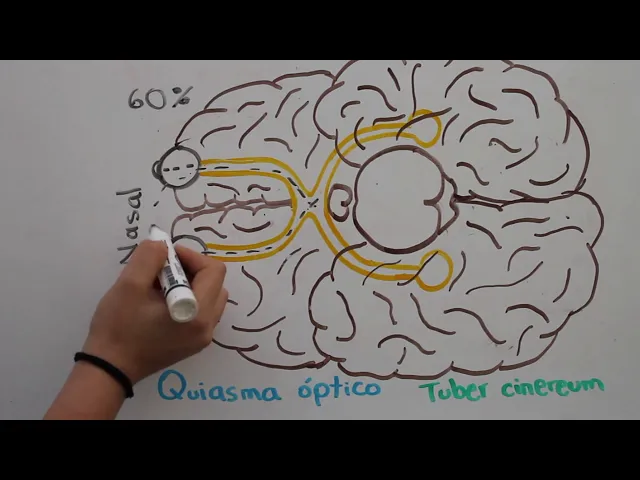 60%
Nasal
Quiasma óptico
Tuber cinereum